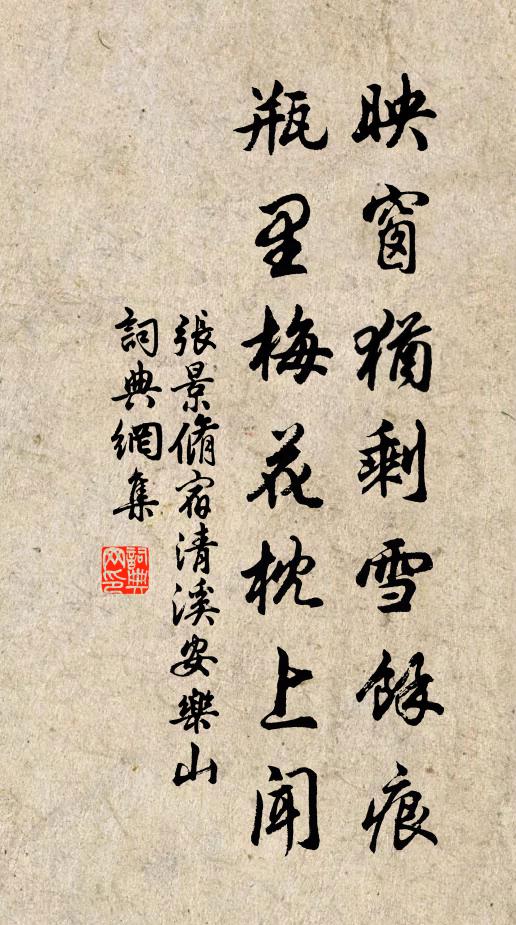 映窗猶剩雪餘痕
瓶里梅花枕上聞
張景脩宿清溪安樂山
詞典網集
詞典网印